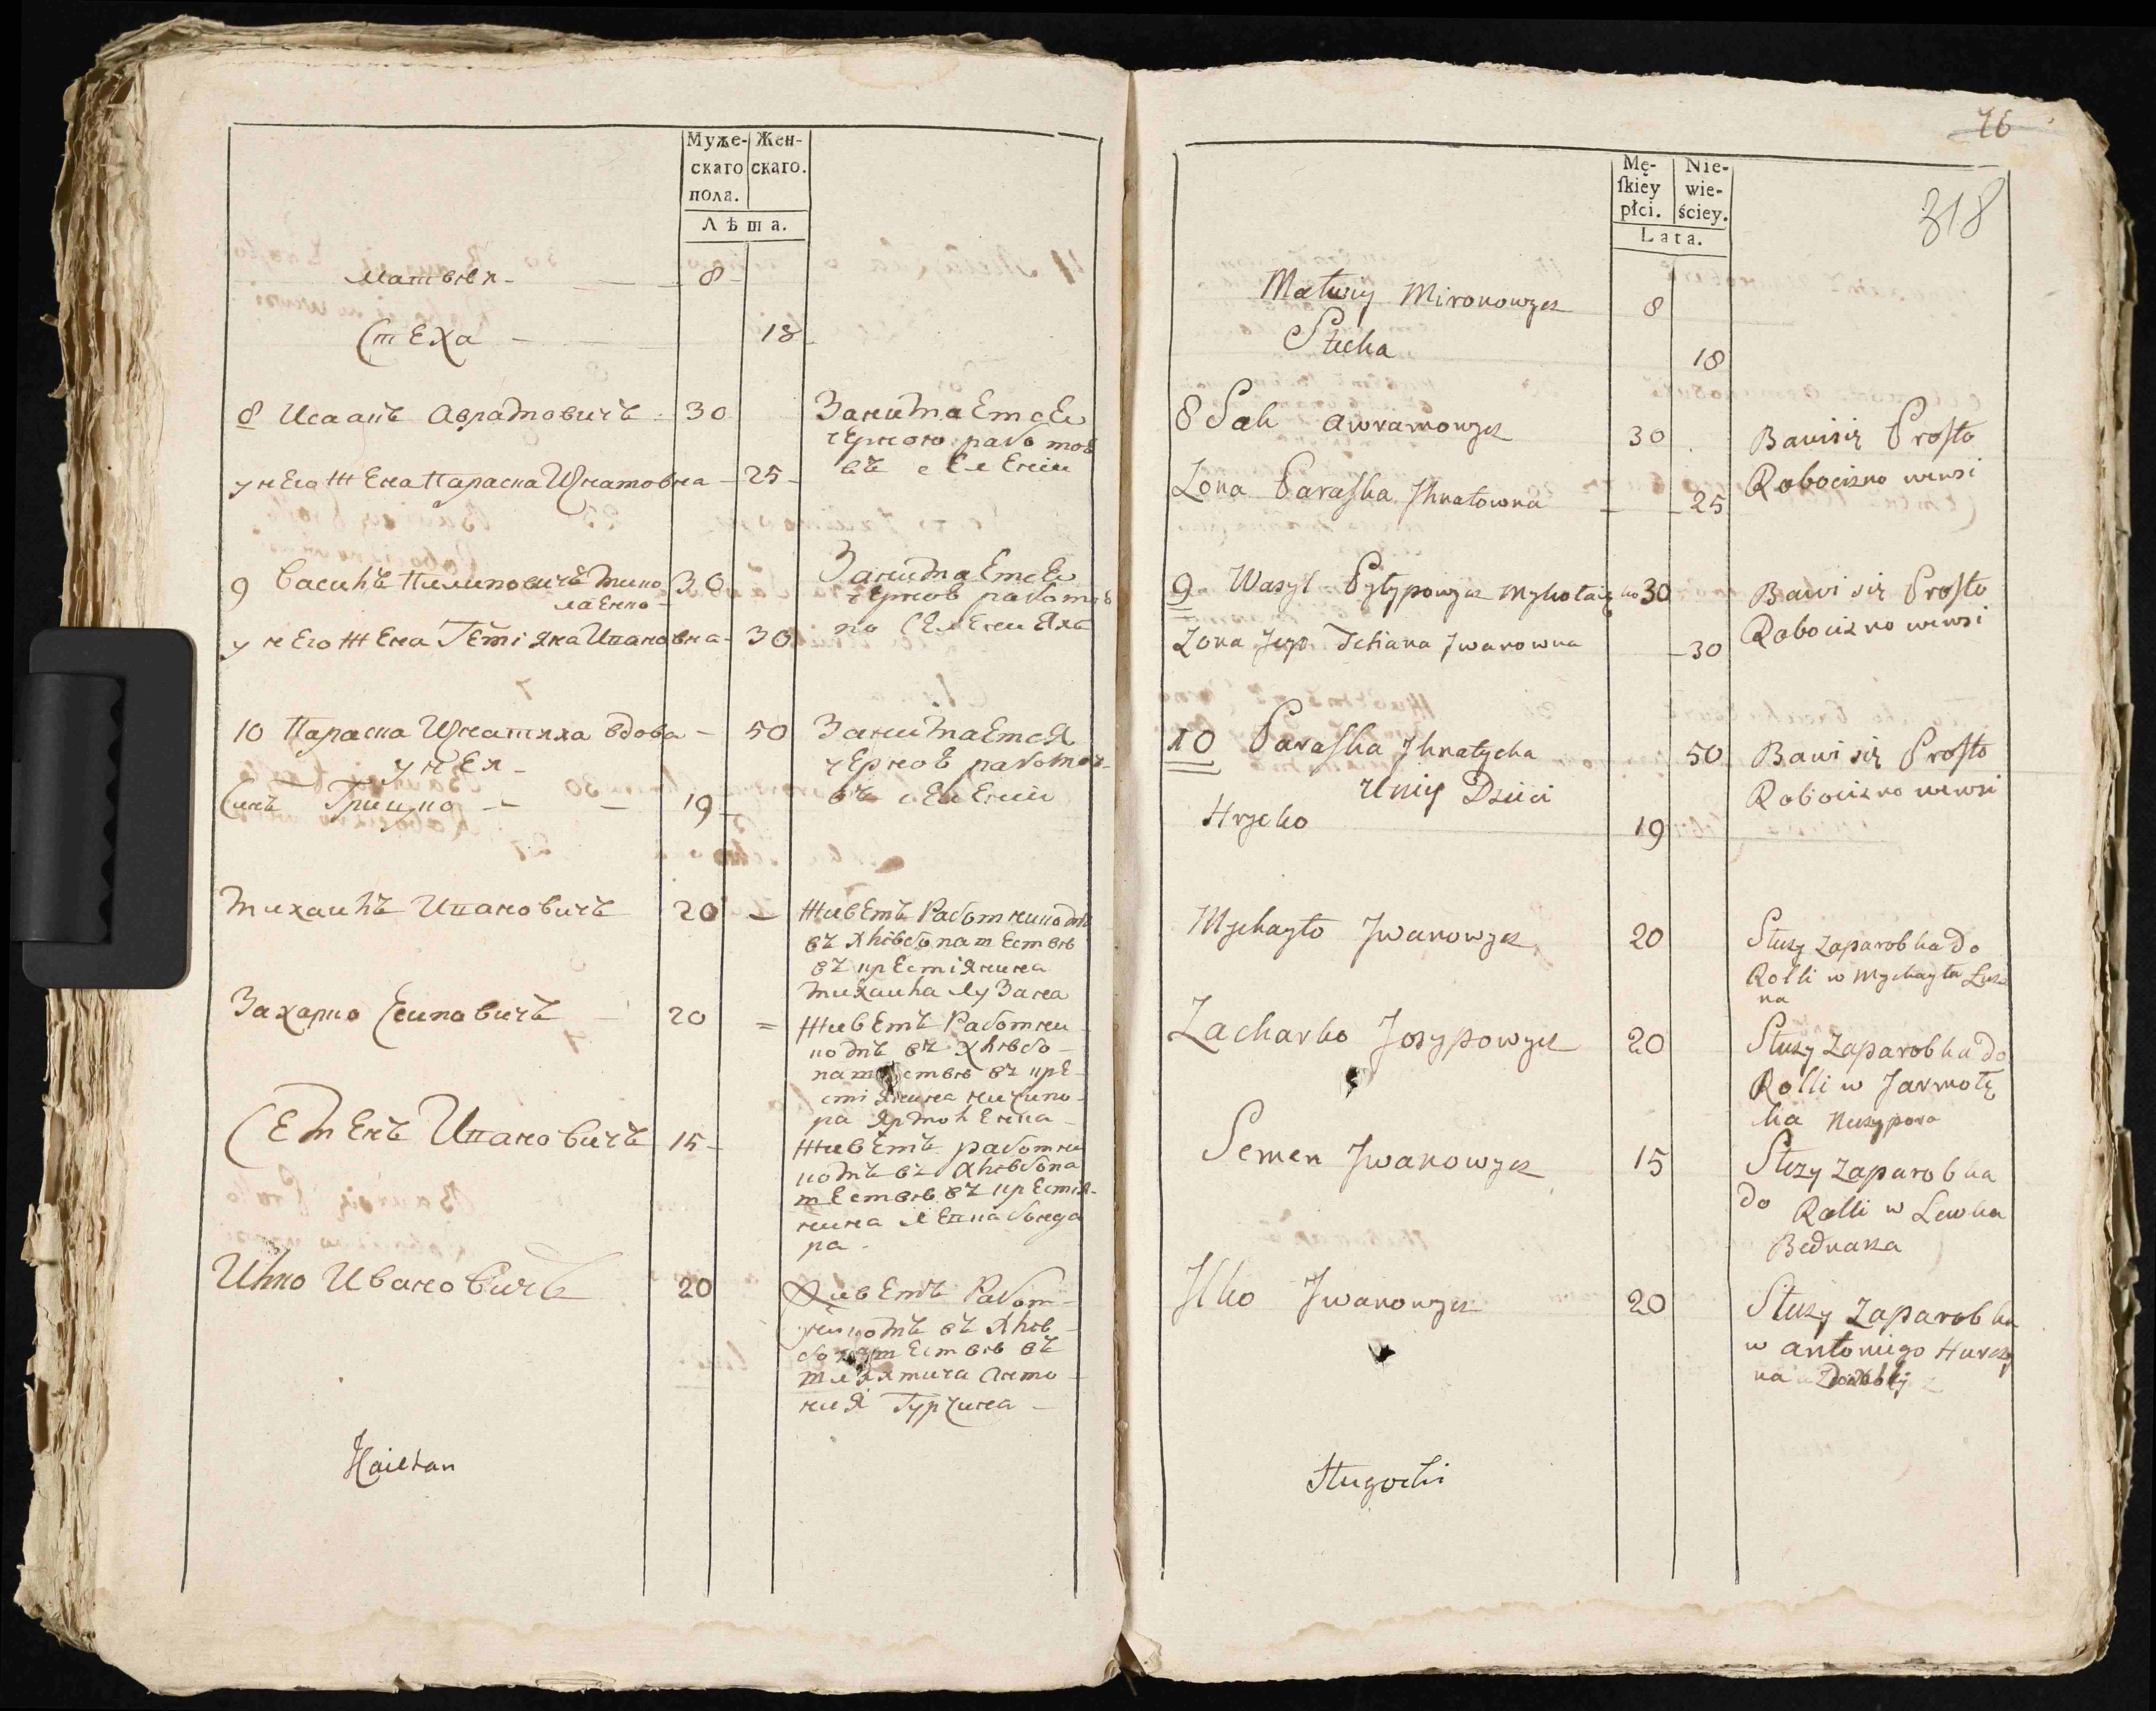 Муже-
скаго
пола.
Жен-
скаго.
Лѣта.
Матвѣя - 8
Стеха - 18
8 Исаакъ Аврамовичъ 30 Занимается
черною работой
въ селеніи
у него жена Параска Игнатовна - 25
9 Василь Пилиповичъ Мико 30 Занимается
лаенко
черною работою
у него жена Тетіяна Ивановна - 30 по селенияхъ
10 Параска Игнатиха вдова - 50 Занимается
у нея
черною работою
Синъ Грицко - 19 въ селении
Михаилъ Ивановичъ 20 Живетъ работникомъ
въ хлѣбопашествѣ
въ крестіянина
Михаила
Захарко Есиповичъ 20 Живетъ работни
комъ въ хлѣбо
пашествѣ въ кре
стіянина Ничипо
ра Ярмоленка
Семенъ Ивановичъ 15 Живетъ работни
комъ въ хлѣбопа
шествѣ въ крестія
нина Левка бондa
ра
Илко Ивановичъ 20 Живетъ работ
никомъ въ хлѣб
опашествѣ въ
шляхтича Анто
нія Гурчина
Kaietan
76
318
Mę-
ſkiey
płci.
Nie-
wie-
ściey.
Lata.
Matwiy Mironowycz 8
Stecha 18
8 Sak Awramowycz 30 Bawi się Prosto
Robocizno wewsi
Zona Paraska Jhnatowna 25
9 Wasyl Pyłypowycz Mykołaięko 30 Bawi się Prosto
Robocizno wewsi
Zona Jego Tetiana Jwanowna 30
10 Paraska Jhnatycha 50 Bawi się Prosto
U niey Dzieci
Robocizno wewsi
Hrycko 19
Mychayło Jwanowycz 20 Służy Zaparobka do
Rolli w Mychayła Łuza
na
Zacharko Josypowycz 20 Służy Zaparobka do
Rolli w Jarmołę
ka Neczypora
Semen Jwanowycz 15 Służy Zaparobka
do Rolli w Lewka
Bednarza
Ilko Jwanowycz 20 Służy Zaparobka
w Antoniego Hurczy
na